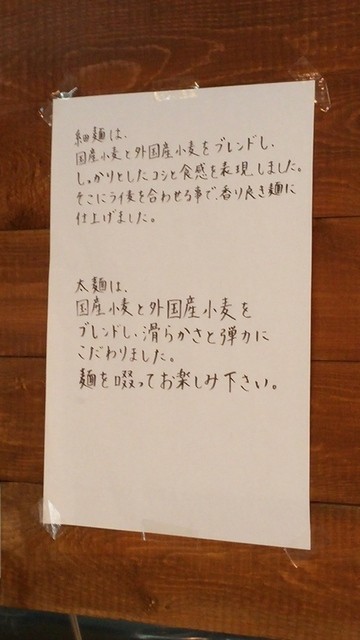 細麺は、
国産小麦と外国産小麦をブレンドし、
しっかりとしたコシと食感を表現しました。
そこにライ麦を合わせる事で、香り良き麺に
仕上げました。
太麺は、
国産小麦と外国産小麦を
ブレンドし、滑らかさと弾力に
こだわりました。
麺を啜ってお楽しみ下さい。